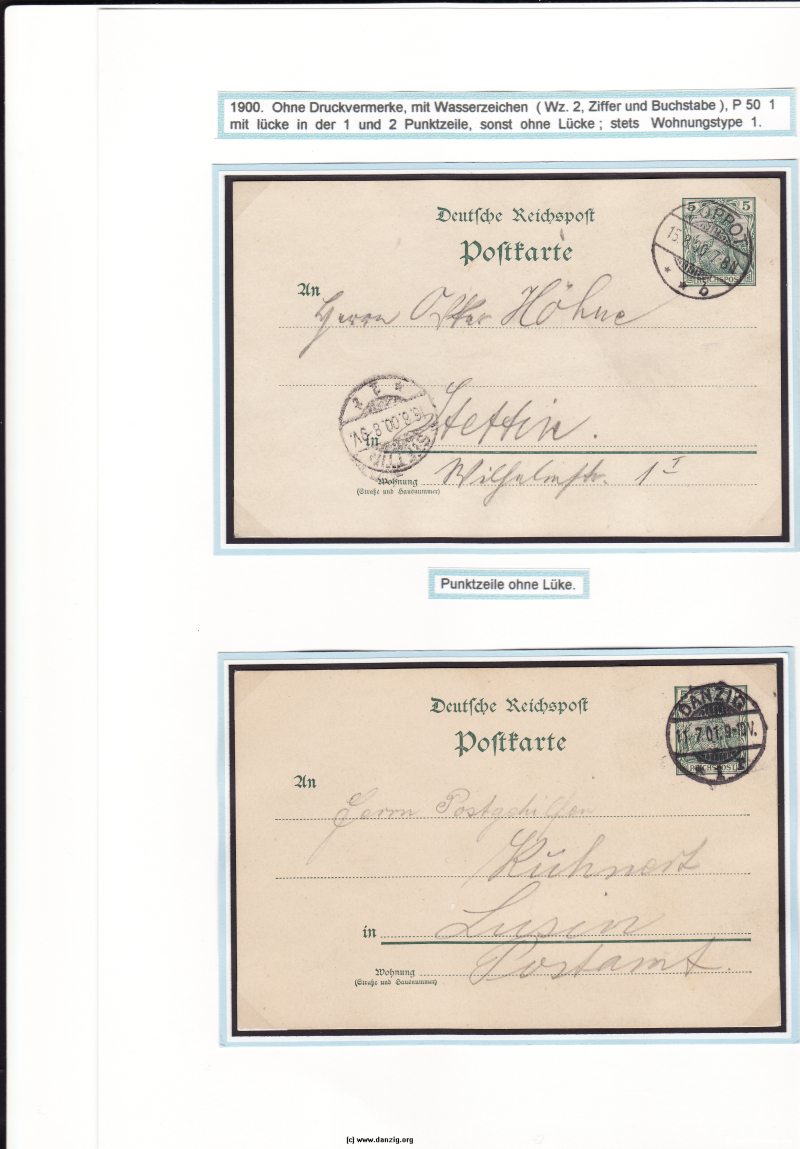 1900. Ohne Druckvermerke, mit Wasserzeichen ( Wz. 2, Ziffer und Buchstabe ), P 50 1
mit lücke in der 1 und 2 Punktzeile, sonst ohne Lücke ; stets Wohnungstype 1.
Deutsche Reichspost
Postkarte
5 5
REICHSPOST
ZOPPOT
15.8.00. 7-8N
* * b
An
Herrn Höhne
STETTIN
16.8.00. 8-9V.
in Stettin.
Wohnung Wilhelmstr. 1 I
(Straße und Hausnummer)
Punktzeile ohne Lüke.
Deutsche Reichspost
Postkarte
REICHSPOST
DANZIG
11.7.01. 9-10V.
* 1
An
Herrn Postgehilfen
Kuhnert
in Lusin
Wohnung Postamt.
(Straße und Hausnummer)
(c) www.danzig.org